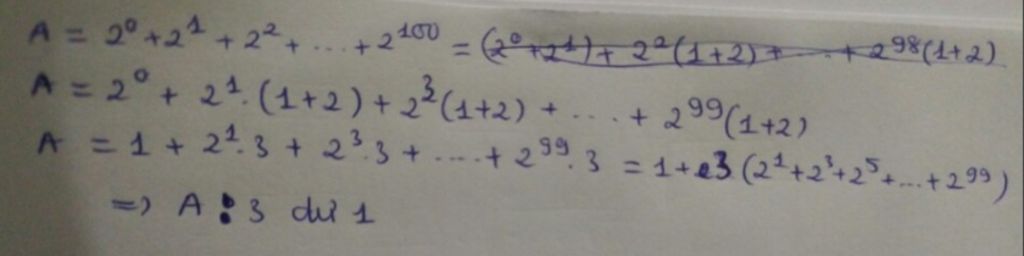 A = 2⁰ + 2¹ + 2² + ... + 2¹⁰⁰ = (2⁰+2¹) + 2²(1+2) + ... + 2⁹⁸(1+2)
A = 2⁰ + 2¹.(1+2) + 2³(1+2) + .... + 2⁹⁹(1+2)
A = 1 + 2¹.3 + 2³.3 + .... + 2⁹⁹.3 = 1+3(2¹+2³+2⁵+...+2⁹⁹)
=> A : 3 dư 1